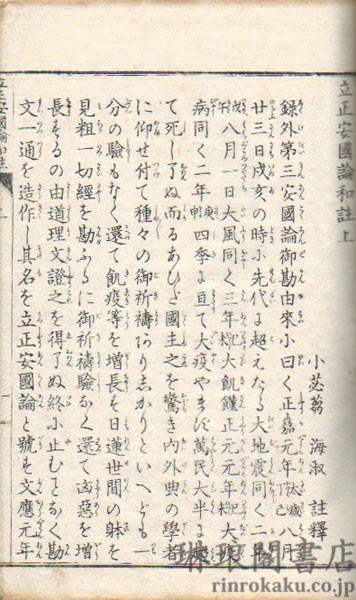 立正安國論和註上
小苾蒭 海淑 註釋
錄外第三安國論御勘由來小曰く正嘉元年 太歲丁巳 八月
廿三日戌亥の時小先代に超えたる大地震同く二年
八月一日大風同く三年 大飢饉正元元年 大疫
病同く二年 四季に亘て大疫やまず萬民大半に
て死し了ぬ而るあひだ國主之を驚き内外典の學者
に仰せ付て種々の御祈禱ありしかりといへども一
分の驗もなく還て飢疫等を增長を日蓮世間の躰を
見粗一切經を勘ふるに御祈禱驗かく還て凶惡を增
長するの由道理文證之を得了ぬ終小止むとなく勘
文一通を造作し其名を立正安國論と號を文應元年
立正安國論和註 上 一
琳琅閣書店
rinrokaku.co.jp